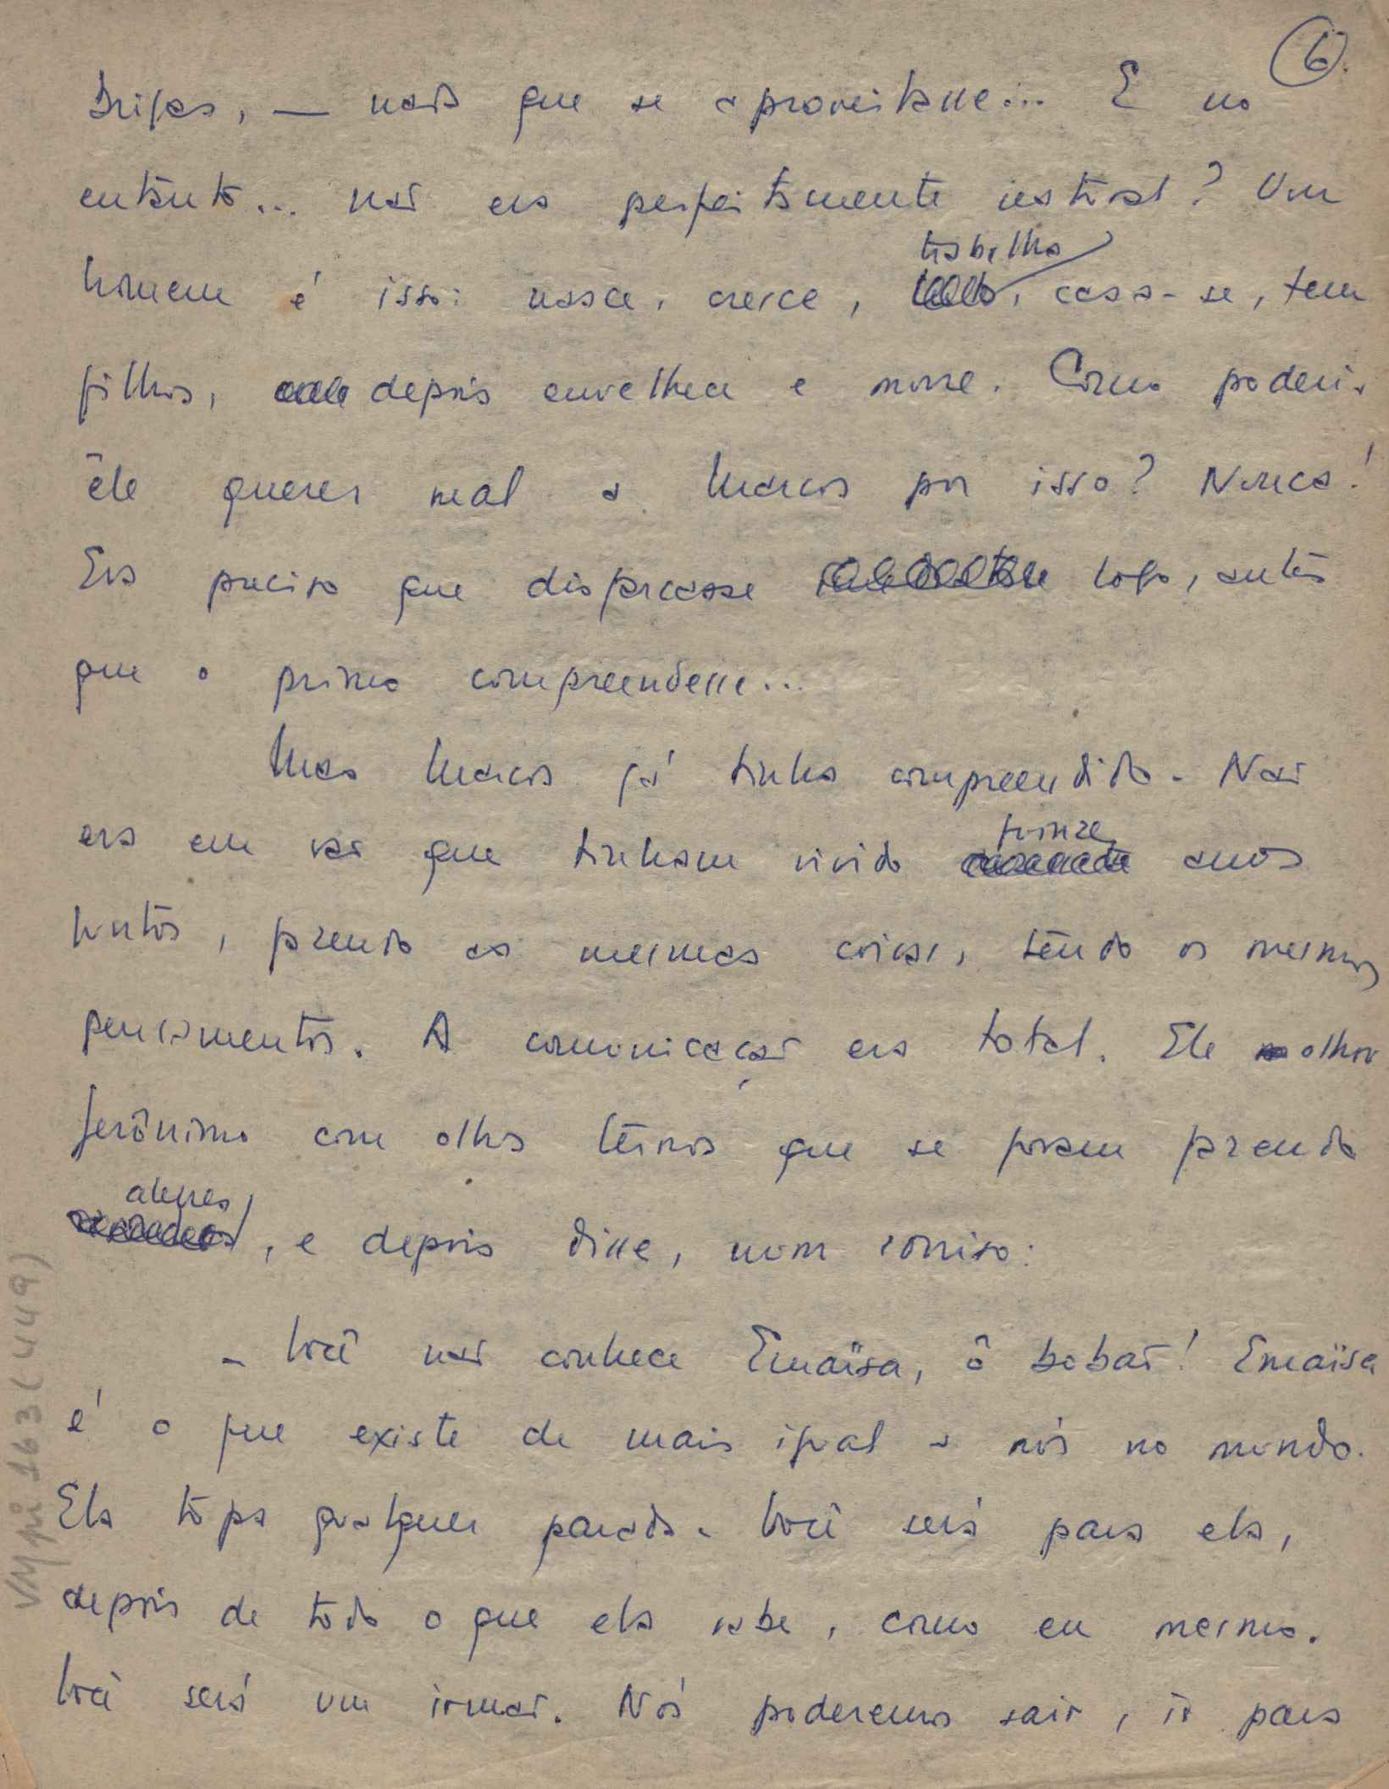 6.
brigas, — nada que se aproveitasse... E no
entanto... não era perfeitamente natural? Um
trabalha
homem é isso: nasce, cresce, casa-se, tem
filhos, depois envelhece e morre. Como poderia
êle querer mal a Marcos por isso? Nunca!
Era preciso que disfarçasse logo, antes
que o primo compreendesse...
Mas Marcos já tinha compreendido. Não
quinze
era em vão que tinham vivido anos
juntos, fazendo as mesmas coisas, tendo os mesmos
pensamentos. A comunicação era total. Ele olhou
Jerônimo com olhos ternos que se foram fazendo
alegres
, e depois disse, num sorriso:
- Você não conhece Emaïsa, ô bobão! Emaïsa
é o que existe de mais igual a nós no mundo.
Ela topa qualquer parada. Você será para ela,
depois de todo o que ela sabe, como eu mesmo.
Você será um irmão. Nós poderemos sair, ir para
VMpi 163(449)